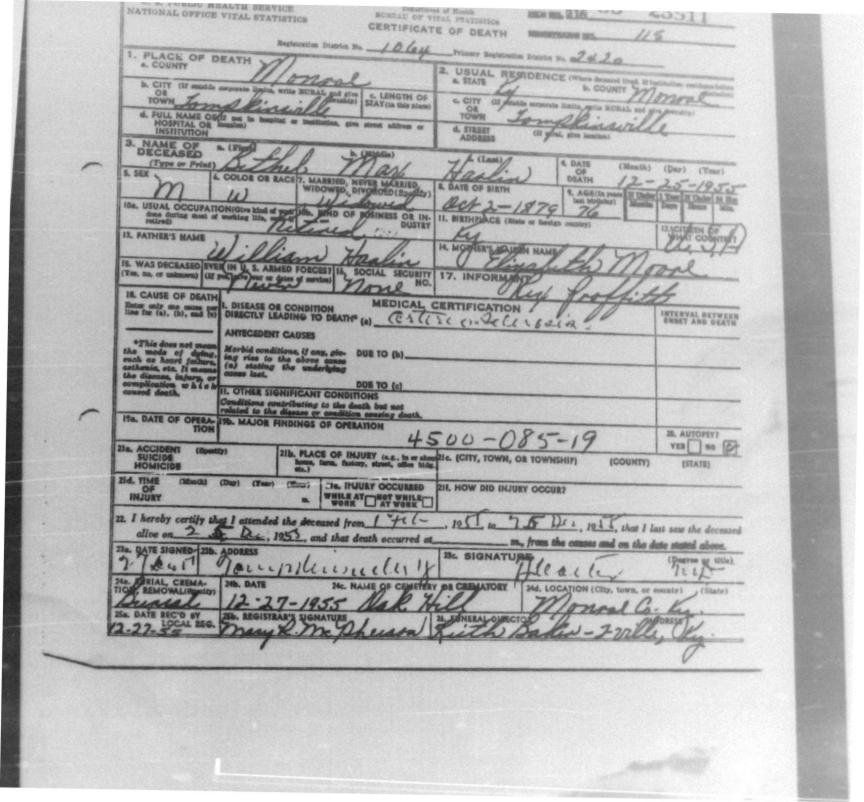 PUBLIC HEALTH SERVICE
NATIONAL OFFICE VITAL STATISTICS
Department of Health
BUREAU OF VITAL STATISTICS
CERTIFICATE OF DEATH
116
23511
115
Registration District No. 1064 Primary Registration District No. 2420
1. PLACE OF DEATH
a. COUNTY Monroe
2. USUAL RESIDENCE (Where deceased lived. If institution: residence before
a. STATE Ky b. COUNTY Monroe
b. CITY (If outside corporate limits, write RURAL and give
OR
TOWN Tompkinsville
c. LENGTH OF
STAY (in this place)
c. CITY (If outside corporate limits, write RURAL and give township)
OR
TOWN Tompkinsville
d. FULL NAME OF (If not in hospital or institution, give street address or
HOSPITAL OR location)
INSTITUTION
d. STREET (If rural, give location)
ADDRESS
3. NAME OF
DECEASED
(Type or Print)
a. (First) Bethel b. (Middle) Max c. (Last) Haslin
4. DATE
OF
DEATH
(Month) (Day) (Year)
12-25-1955
5. SEX
M
6. COLOR OR RACE
W
7. MARRIED, NEVER MARRIED,
WIDOWED, DIVORCED (Specify)
Widowed
8. DATE OF BIRTH
Oct 2-1879
9. AGE (In years
last birthday)
76
10a. USUAL OCCUPATION (Give kind of work
done during most of working life, even if
retired)
10b. KIND OF BUSINESS OR IN-
DUSTRY
Retired
11. BIRTHPLACE (State or foreign country)
Ky
12. CITIZEN OF
WHAT COUNTRY?
USA
13. FATHER'S NAME
William Haslin
14. MOTHER'S MAIDEN NAME
Elizabeth Moore
15. WAS DECEASED EVER IN U. S. ARMED FORCES?
(Yes, no, or unknown) (If yes, give war or dates of service)
Never
16. SOCIAL SECURITY
NO.
None
17. INFORMANT
Rex Proffitt
18. CAUSE OF DEATH
Enter only one cause per
line for (a), (b), and (c)
MEDICAL CERTIFICATION
I. DISEASE OR CONDITION
DIRECTLY LEADING TO DEATH* (a)
INTERVAL BETWEEN
ONSET AND DEATH
*This does not mean
the mode of dying,
such as heart failure,
asthenia, etc. It means
the disease, injury, or
complication which
caused death.
ANTECEDENT CAUSES
Morbid conditions, if any, giv-
ing rise to the above cause
(a) stating the underlying
cause last.
DUE TO (b)
DUE TO (c)
II. OTHER SIGNIFICANT CONDITIONS
Conditions contributing to the death but not
related to the disease or condition causing death.
19a. DATE OF OPERA-
TION
19b. MAJOR FINDINGS OF OPERATION
4500-085-19
20. AUTOPSY?
YES NO
21a. ACCIDENT (Specify)
SUICIDE
HOMICIDE
21b. PLACE OF INJURY (e.g., in or about
home, farm, factory, street, office bldg.
etc.)
21c. (CITY, TOWN, OR TOWNSHIP) (COUNTY) (STATE)
21d. TIME (Month) (Day) (Year) (Hour)
OF
INJURY m.
21e. INJURY OCCURRED
WHILE AT WORK NOT WHILE AT WORK
21f. HOW DID INJURY OCCUR?
22. I hereby certify that I attended the deceased from to 25 Dec, that I last saw the deceased
alive on 25 Dec, 1955, and that death occurred at m., from the causes and on the date stated above.
23a. DATE SIGNED
23b. ADDRESS
23c. SIGNATURE (Degree or title)
24a. BURIAL, CREMA-
TION, REMOVAL (Specify)
24b. DATE
12-27-1955
24c. NAME OF CEMETERY OR CREMATORY
Oak Hill
24d. LOCATION (City, town, or county) (State)
Monroe Co. Ky.
25a. DATE REC'D BY
LOCAL REG.
12-27-55
25b. REGISTRAR'S SIGNATURE
Mary R. McPherson
26. FUNERAL DIRECTOR ADDRESS
Keith Baker - T-ville, Ky.